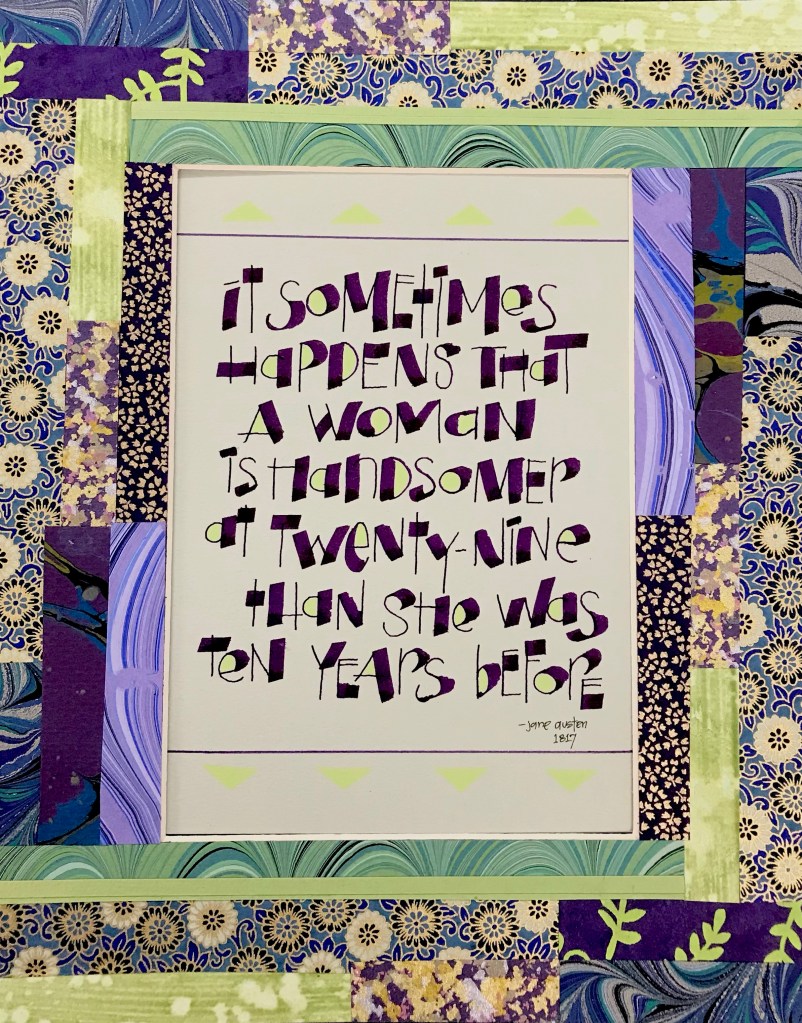 iT SOMETiMES
HAPPENS THaT
A WOMaN
iS HaNDSOMEr
aT TWeNTY-NiNe
tHaN SHe WaS
TeN YEArS bEFOrE
-jane austen
1817